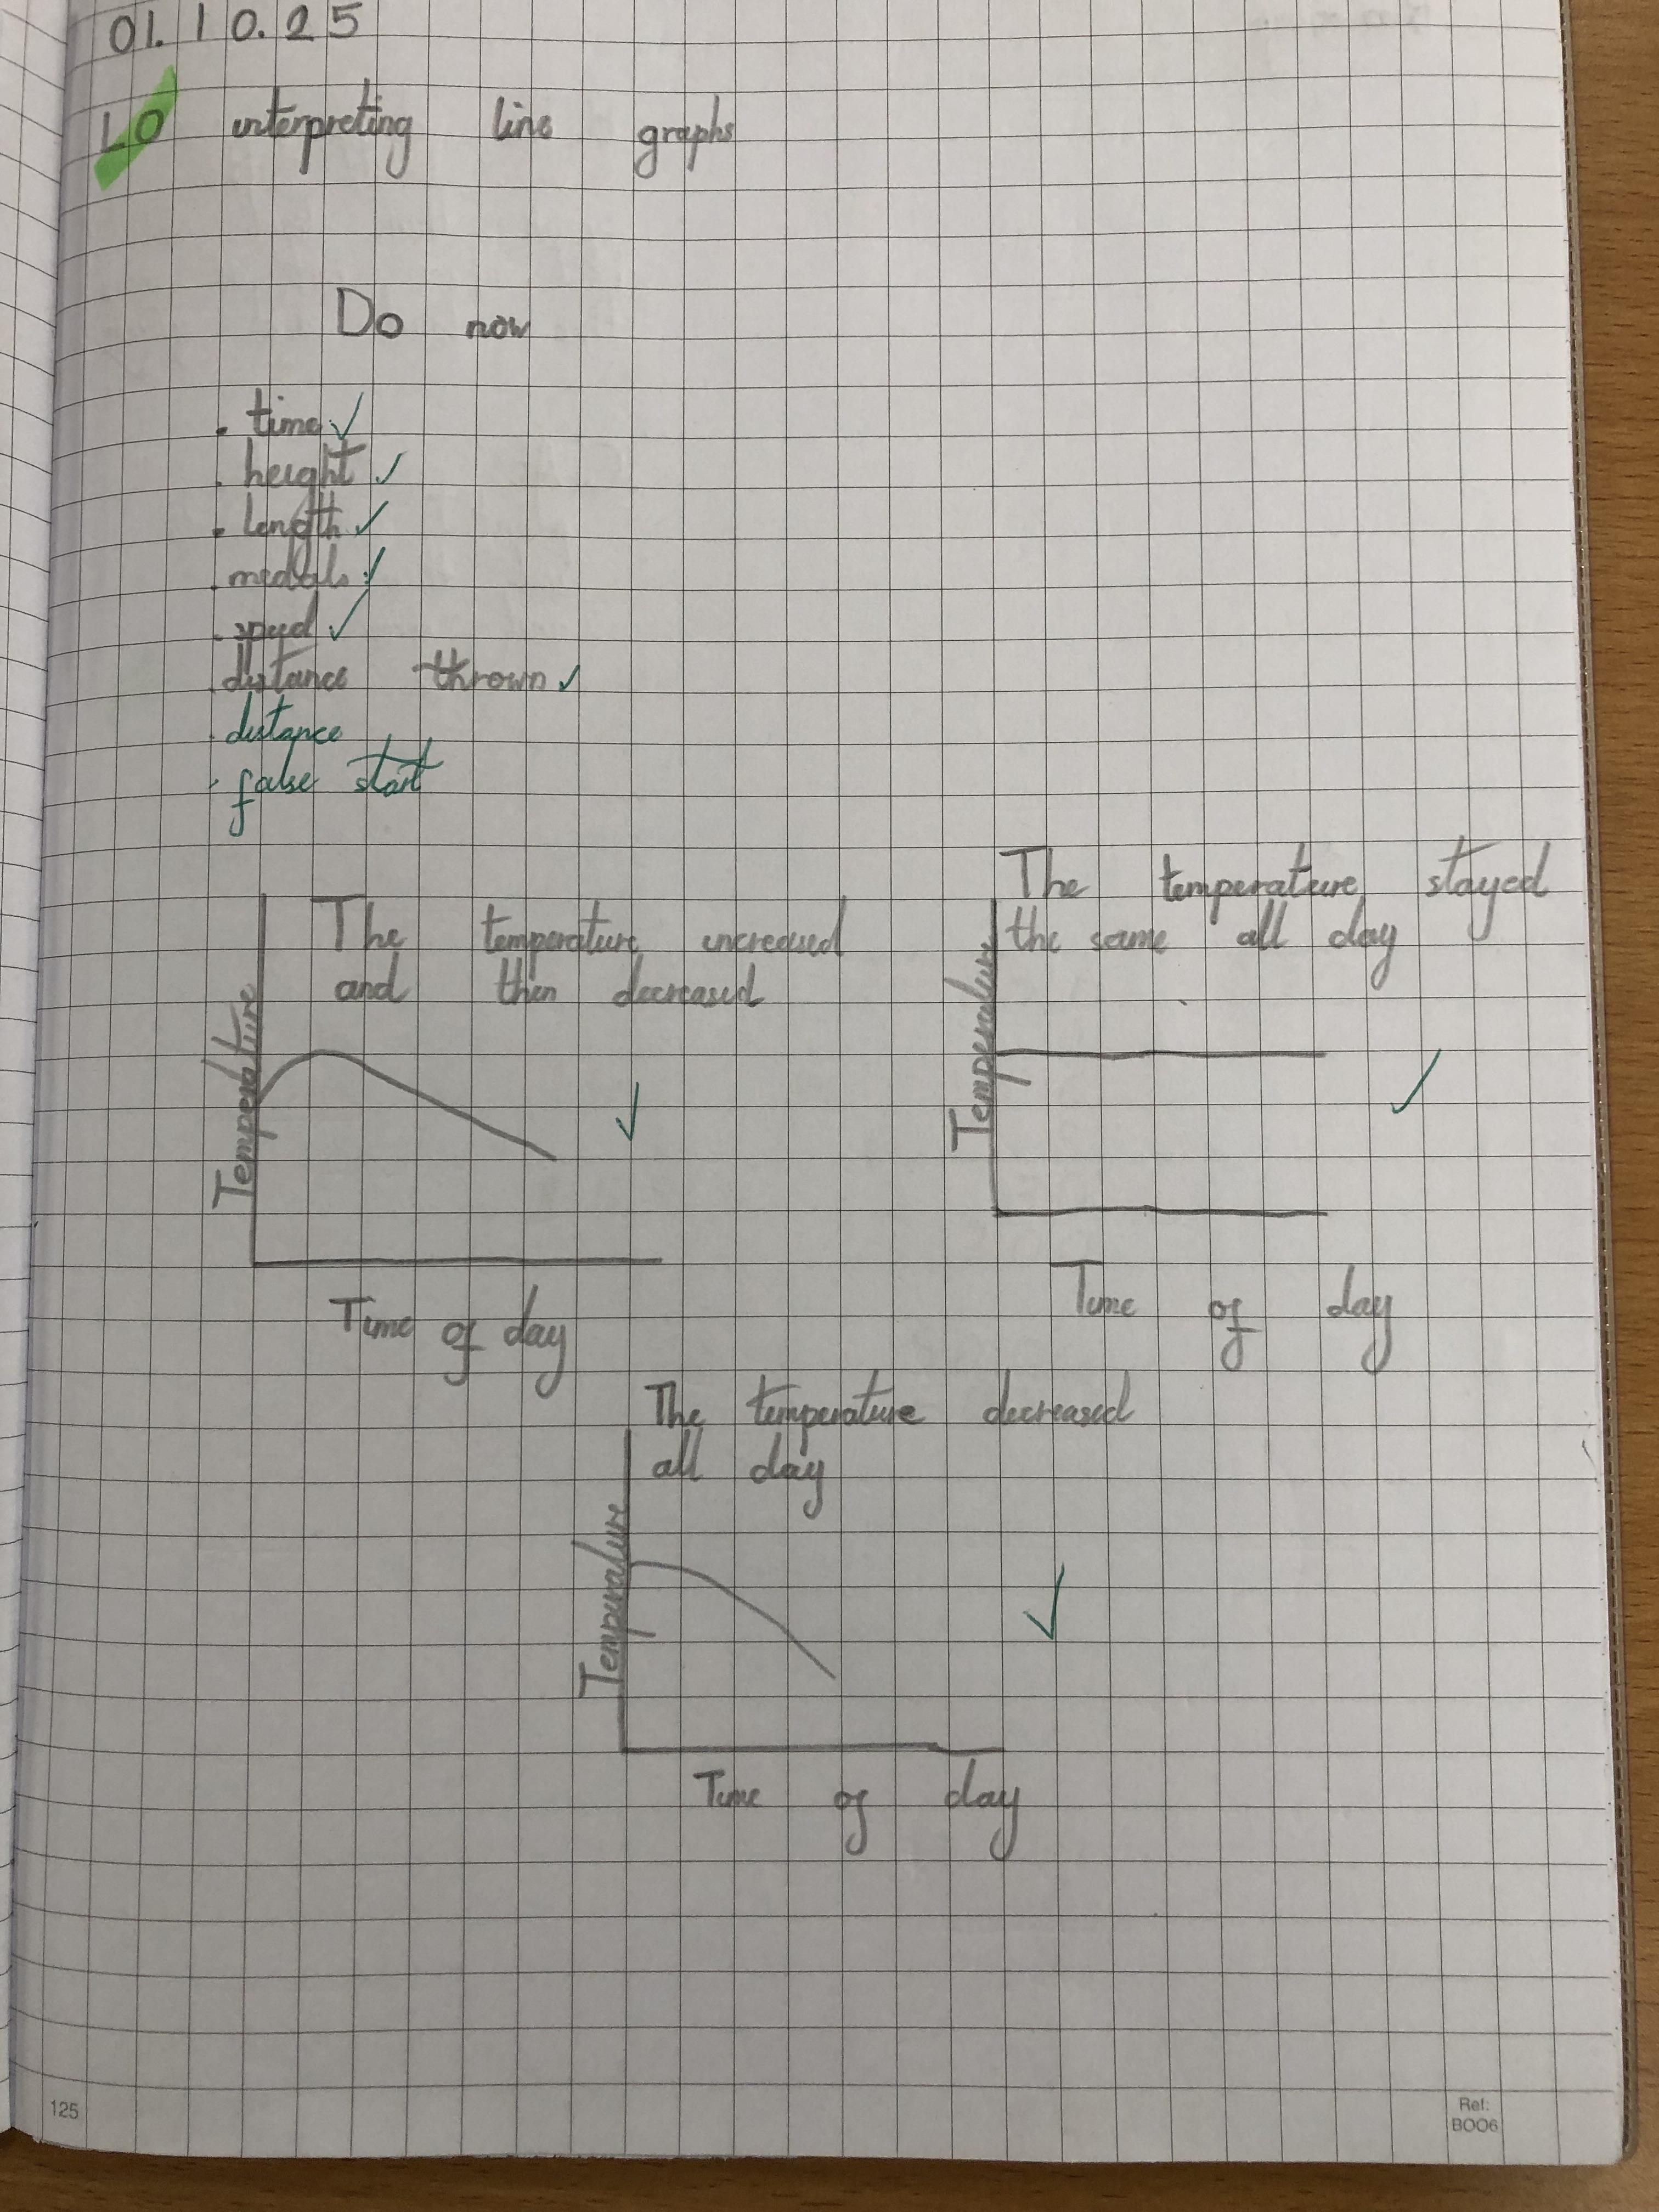 01.10.25
LO interpreting line graphs
Do now
. time ✓
. height ✓
. length ✓
. medals ✓
. speed ✓
. distance thrown ✓
. distance
. false start
The temperature increased
and then decreased
Temperature
Time of day
The temperature stayed
the same all day
Temperature
Time of day
The temperature decreased
all day
Temperature
Time of day
125
Ref:
BOO6